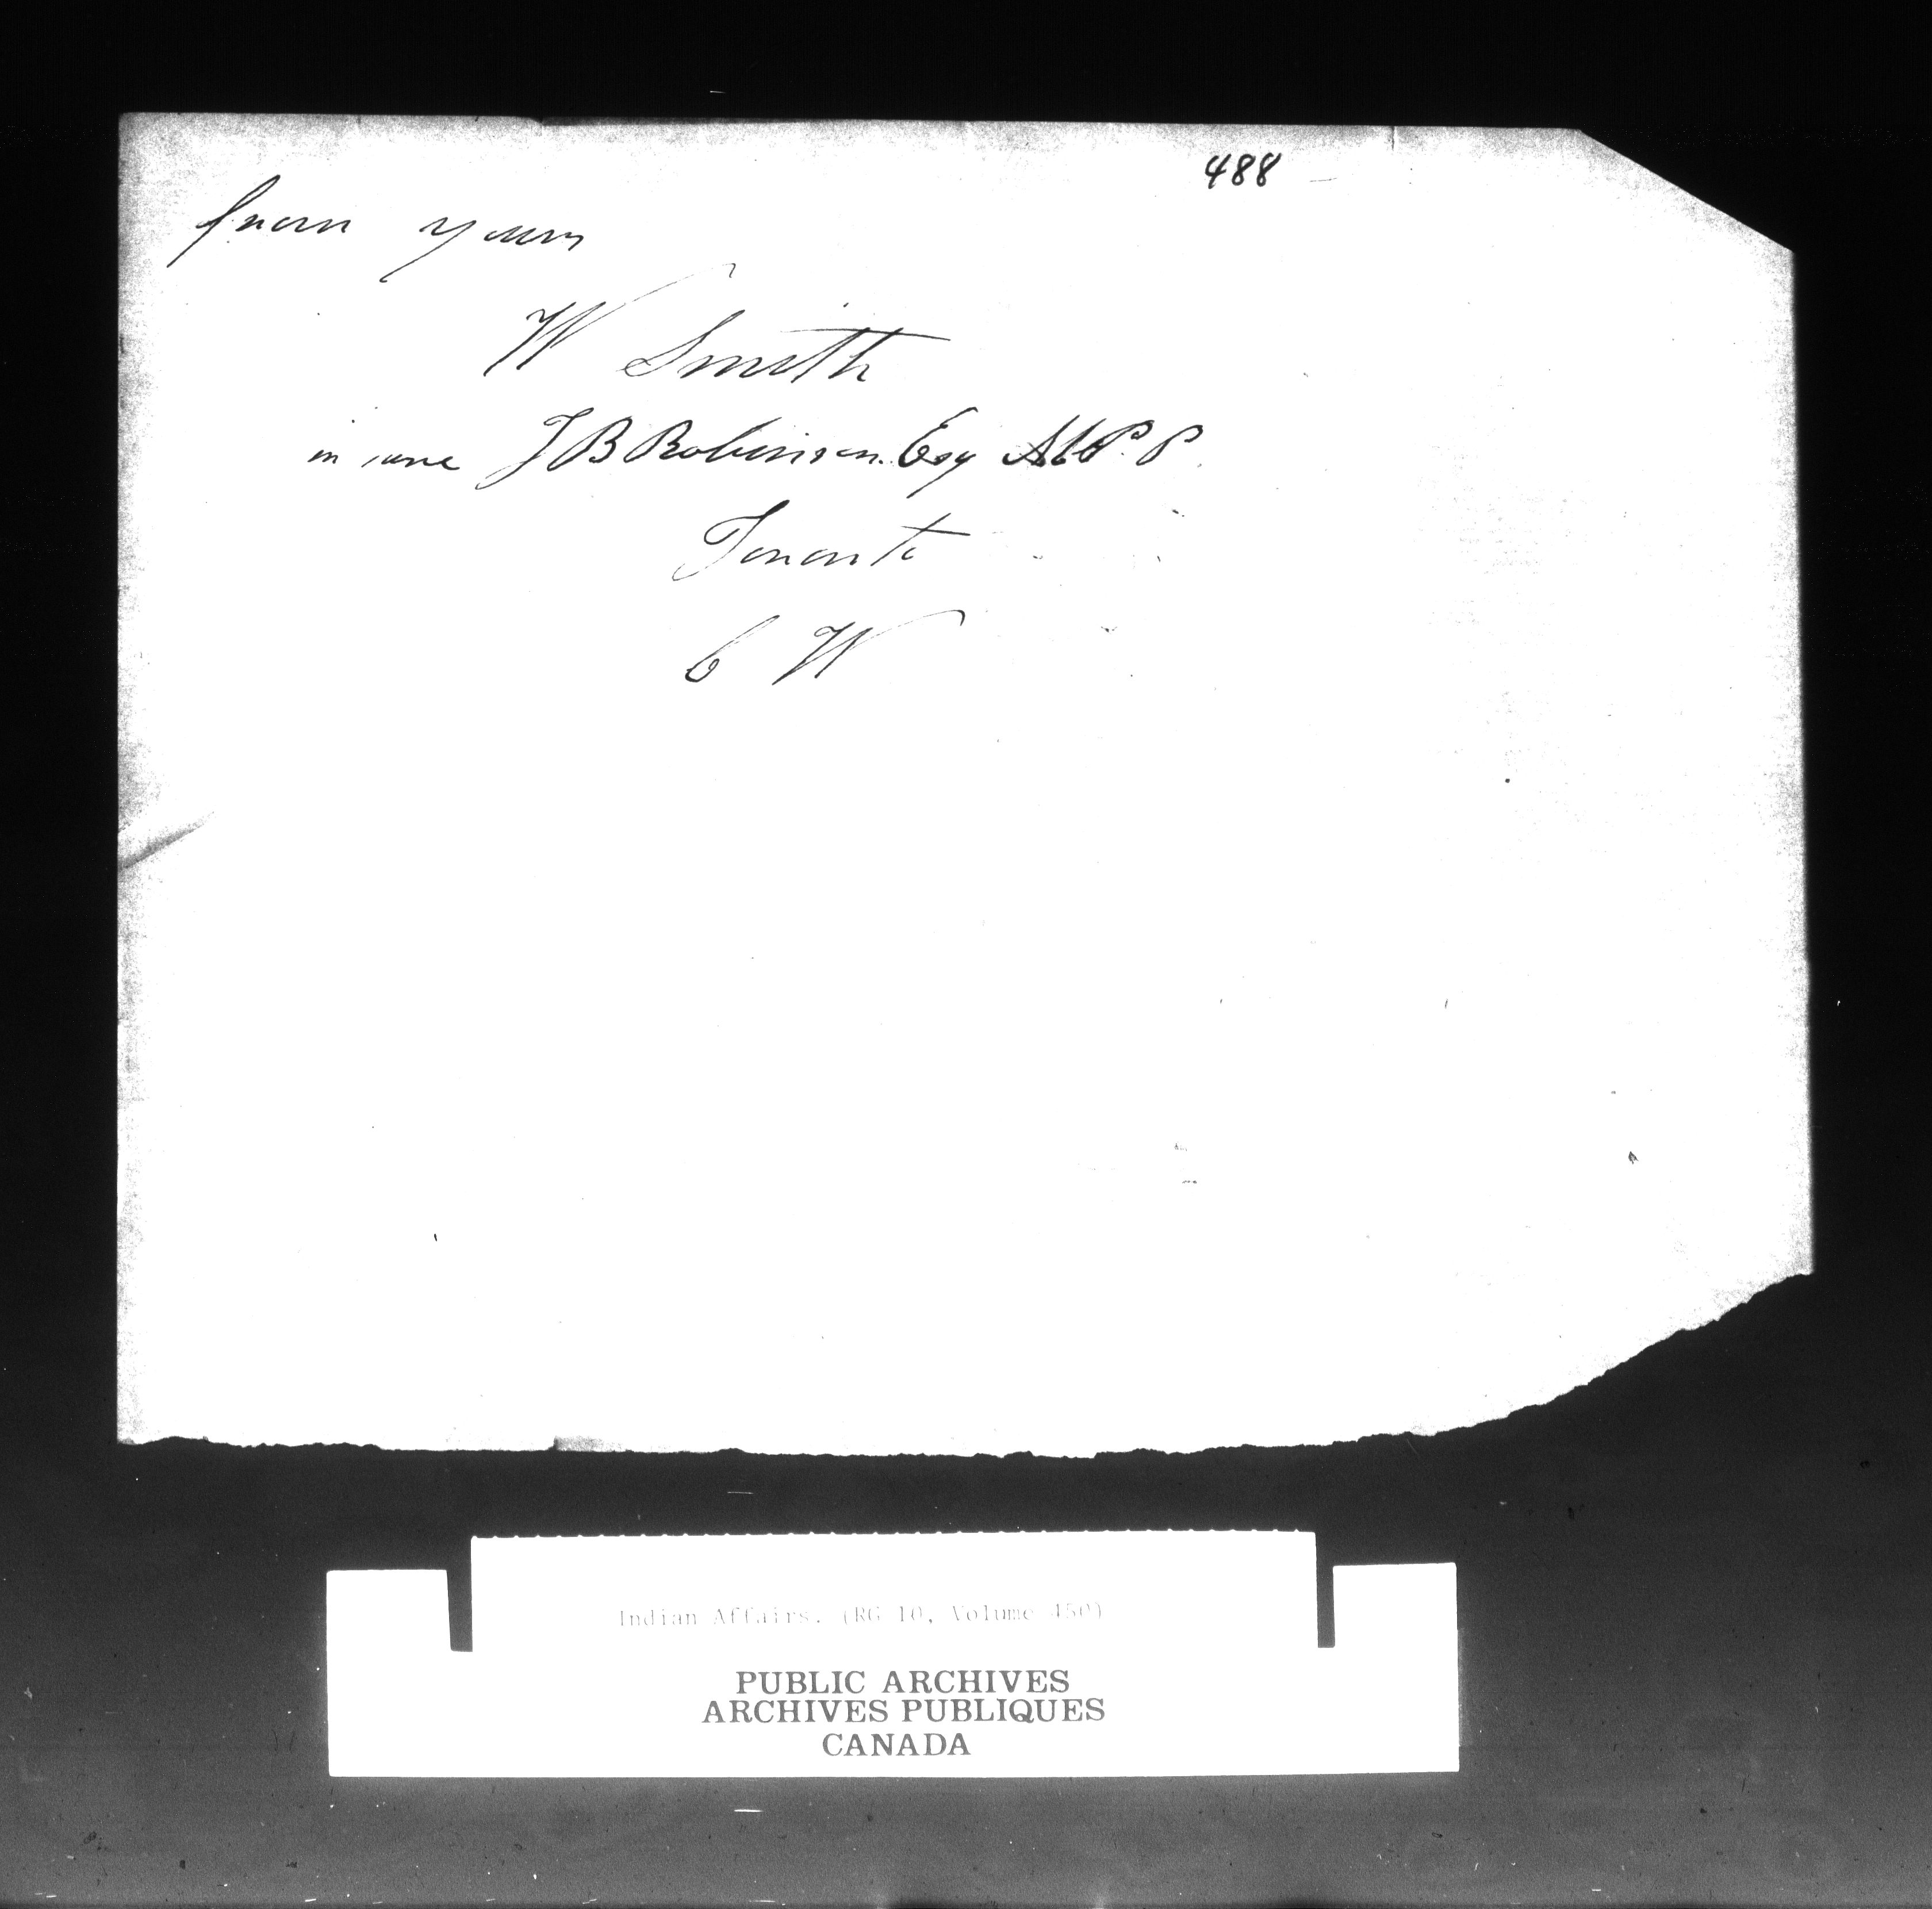 488
from yours
W Smith
in care J B Robinson Esq M.P.P.
Toronto
C W
Indian Affairs. (RG 10, Volume 450)
PUBLIC ARCHIVES
ARCHIVES PUBLIQUES
CANADA